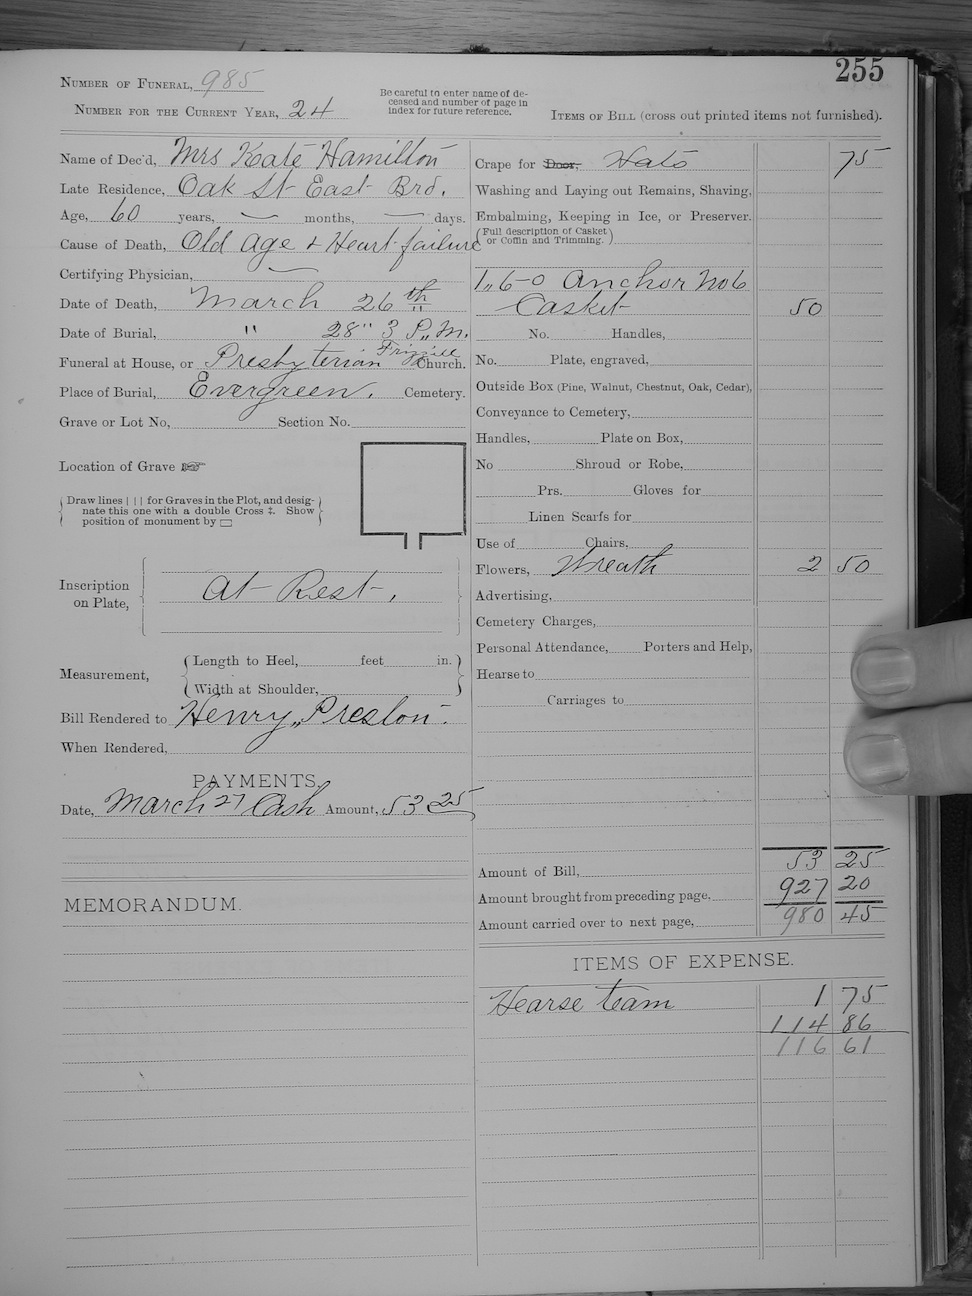 255
Number of Funeral, 985
Number for the Current Year, 24
Be careful to enter name of de-
ceased and number of page in
index for future reference.
Items of Bill (cross out printed items not furnished).
Name of Dec'd, Mrs Kate Hamilton
Late Residence, Oak St East Brd.
Age, 60 years, — months, — days.
Cause of Death, Old age & Heart failure
Certifying Physician, —
Date of Death, March 26th
Date of Burial, " 28" 3 P,, M.
Funeral at House, or Presbyterian Frizzill Church.
Place of Burial, Evergreen, Cemetery.
Grave or Lot No, Section No.
Location of Grave ☞
Draw lines | | | for Graves in the Plot, and desig-
nate this one with a double Cross ‡. Show
position of monument by ▭
Inscription
on Plate,
At Rest,
Measurement,
Length to Heel, feet in.
Width at Shoulder,
Bill Rendered to Henry,, Preston.
When Rendered,
PAYMENTS,
Date, March 27 Cash Amount, 53 25
MEMORANDUM.
Crape for Door, Hats 75
Washing and Laying out Remains, Shaving,
Embalming, Keeping in Ice, or Preserver.
(Full description of Casket
or Coffin and Trimming.)
1,, 6-0 Anchor No 6
Casket 50
No. Handles,
No. Plate, engraved,
Outside Box (Pine, Walnut, Chestnut, Oak, Cedar),
Conveyance to Cemetery,
Handles, Plate on Box,
No Shroud or Robe,
Prs. Gloves for
Linen Scarfs for
Use of Chairs,
Flowers, Wreath 2 50
Advertising,
Cemetery Charges,
Personal Attendance, Porters and Help,
Hearse to
Carriages to
Amount of Bill, 53 25
Amount brought from preceding page, 927 20
Amount carried over to next page, 980 45
ITEMS OF EXPENSE.
Hearse team 1 75
114 86
116 61